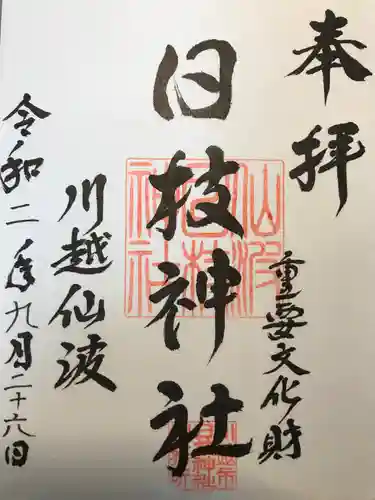 奉拝
重要文化財
日枝神社
川越仙波
令和二年九月二十六日
仙波
日枝
神社